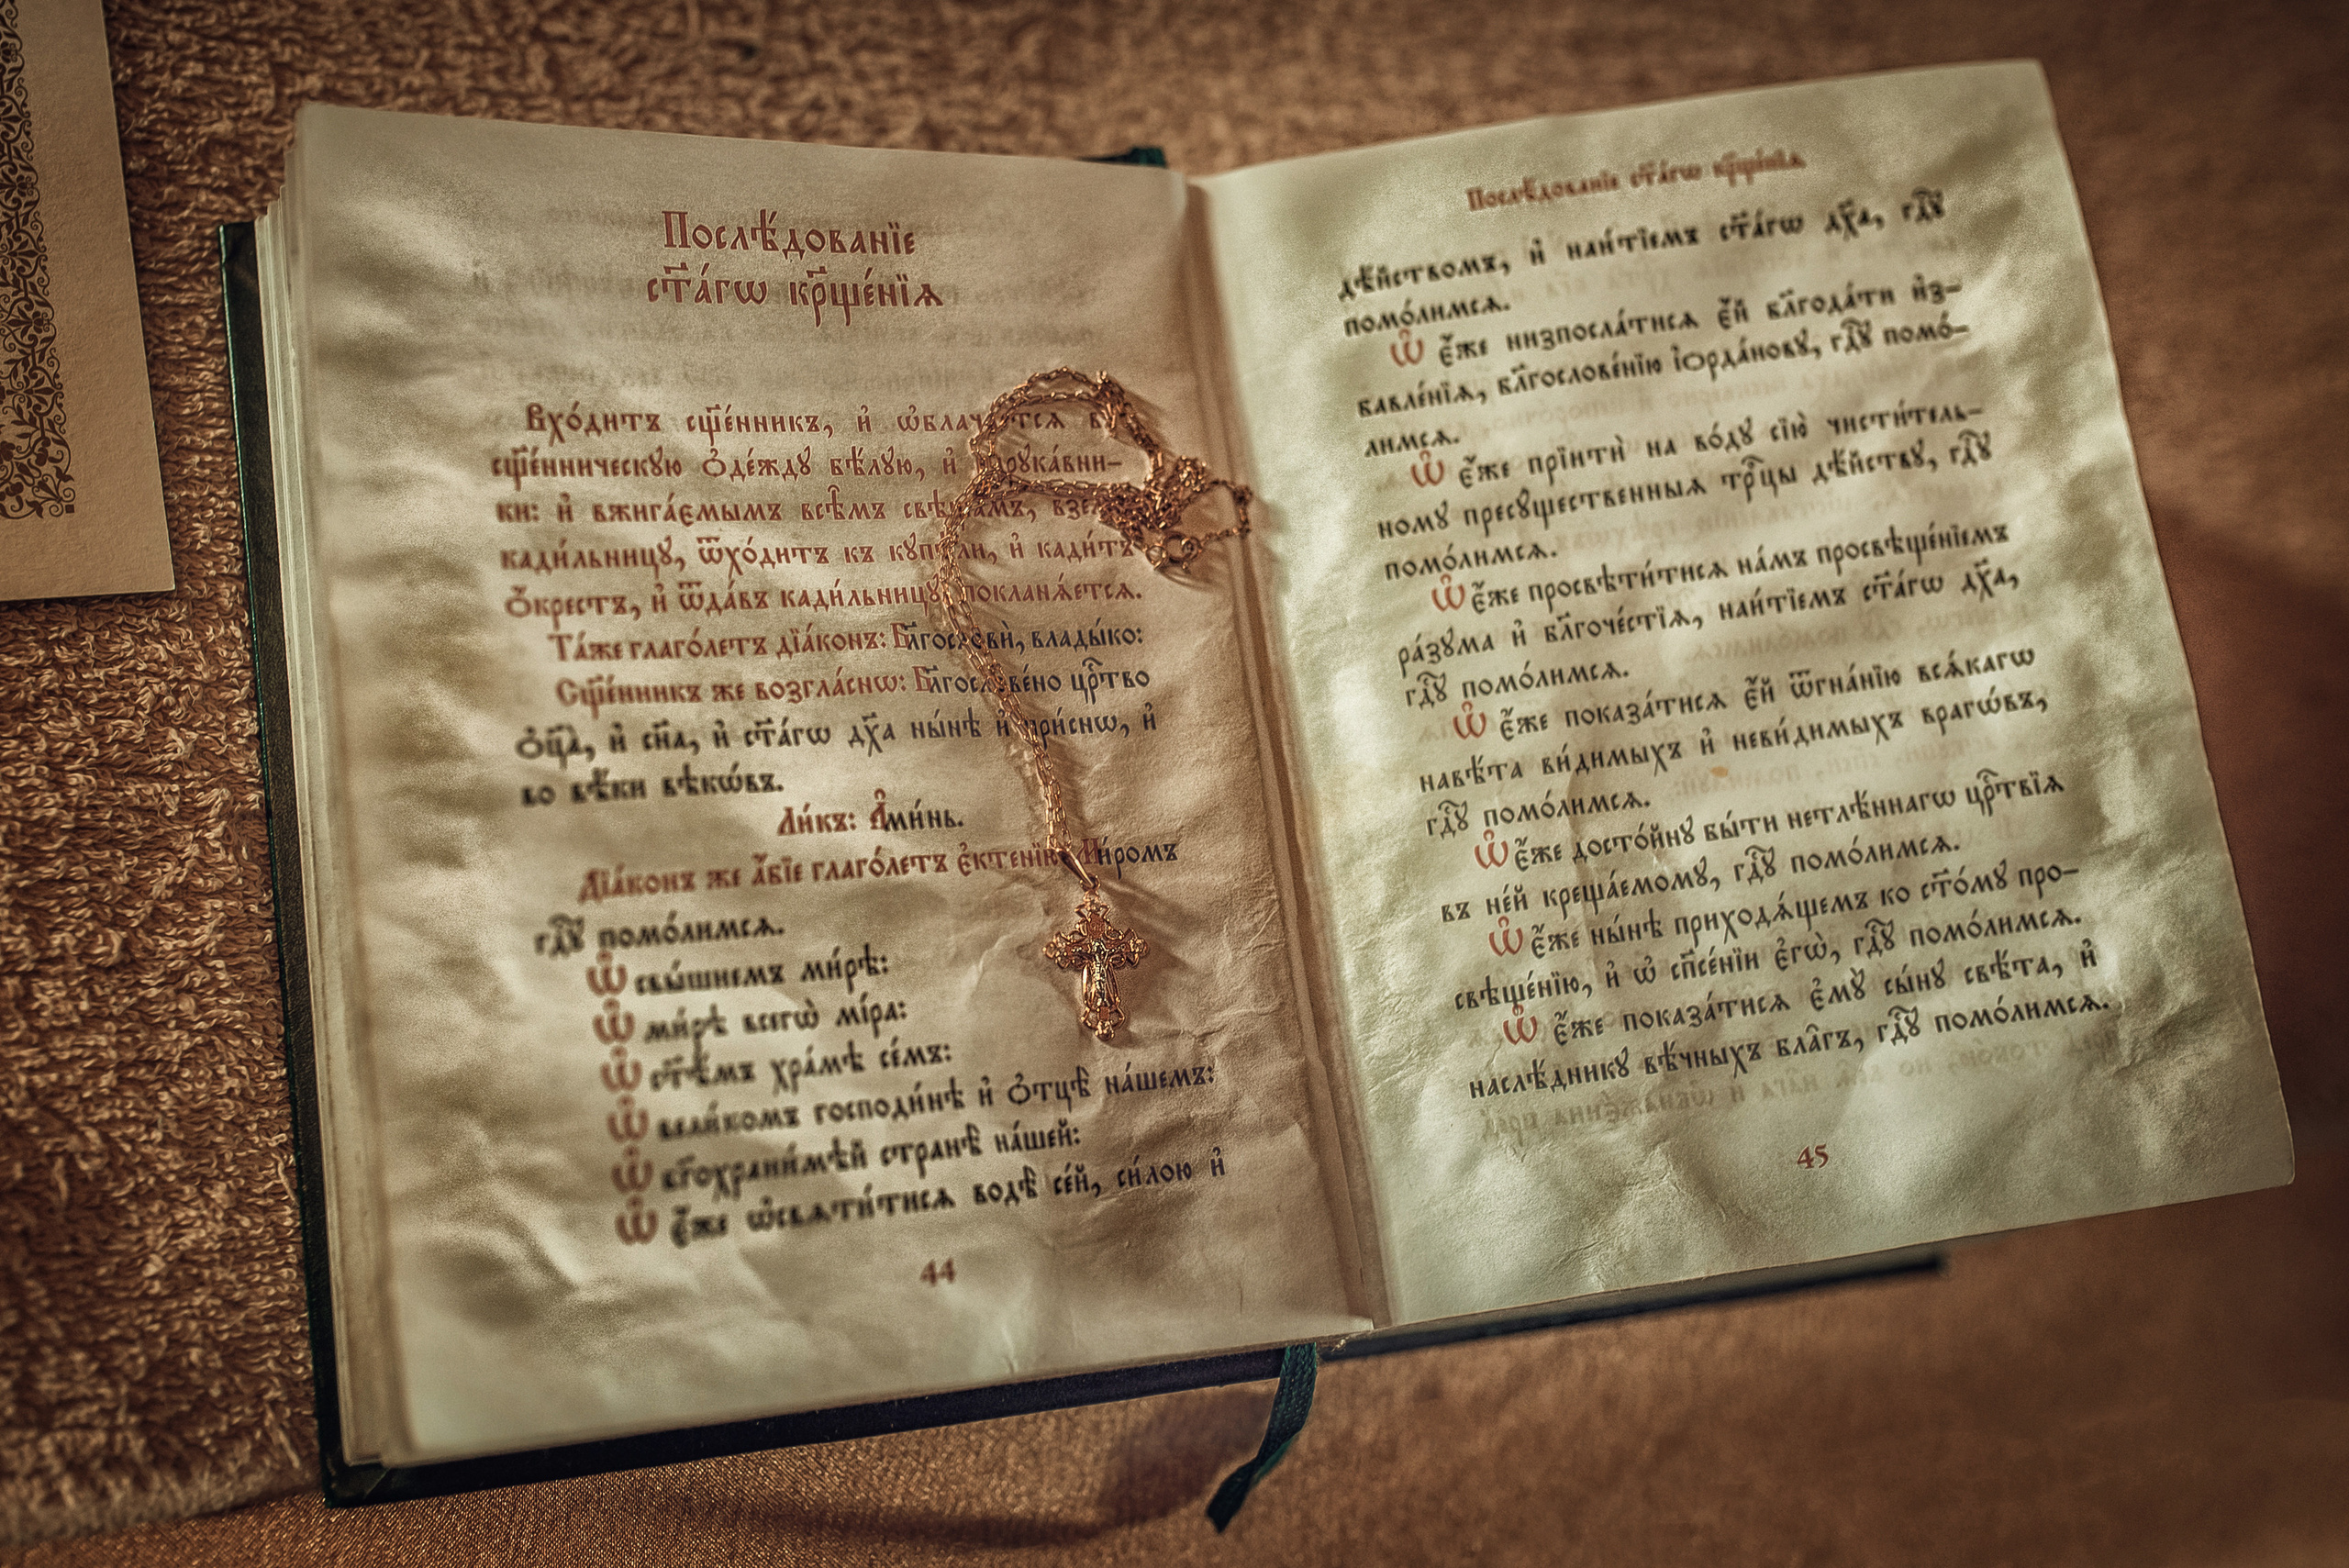 Послѣ́дованїе
ст҃а́гѡ кр҃щє́нїѧ
Вхо́дитъ сщ҃е́нникъ, и҆ ѡ҆блача́етсѧ въ
сщ҃е́нническꙋю ѻ҆де́ждꙋ бѣ́лꙋю, и҆ нарꙋка́вни-
ки: и҆ вжига́ємымъ всѣ̑мъ свѣща́мъ, взе́мъ
кади́льницꙋ, ѿхо́дитъ къ кꙋпѣ́ли, и҆ кади́тъ
ѻ҆́крестъ, и҆ ѿда́въ кади́льницꙋ, покланѧ́етсѧ.
Та́же глаго́летъ дїа́конъ: Бл҃гословѝ, влады́ко:
Сщ҃е́нникъ же возгла́снѡ: Бл҃гослове́но цр҃тво
ѻ҆ц҃а̀, и҆ сн҃а, и҆ ст҃а́гѡ дх҃а ны́нѣ и҆ при́снѡ, и҆
во вѣ́ки вѣкѡ́въ.
Ли́къ: А҆ми́нь.
Дїа́конъ же а҆́бїе глаго́летъ є҆ктенїю̀: Ми́ромъ
гдⷭ҇ꙋ помо́лимсѧ.
Ѡ҆ свы́шнемъ ми́рѣ:
Ѡ҆ ми́рѣ всегѡ̀ мі́ра:
Ѡ҆ ст҃ѣ́мъ хра́мѣ се́мъ:
Ѡ҆ вели́комъ господи́нѣ и҆ ѻ҆тцѣ̀ на́шемъ:
Ѡ҆ бг҃охрани́мѣй странѣ̀ на́шей:
Ѡ҆ є҆́же ѡ҆свѧти́тисѧ водѣ̀ се́й, си́лою и҆
44
Послѣ́дованїе ст҃а́гѡ кр҃щє́нїѧ
дѣ́йствомъ, и҆ наи́тїемъ ст҃а́гѡ дх҃а, гдⷭ҇ꙋ
помо́лимсѧ.
Ѡ҆ є҆́же низпосла́тисѧ є҆́й бл҃года́ти и҆з-
бавле́нїѧ, бл҃гослове́нїю і҆ѻрда́новꙋ, гдⷭ҇ꙋ помо́-
лимсѧ.
Ѡ҆ є҆́же прїитѝ на во́дꙋ сїю̀ чисти́тель-
номꙋ пресꙋщественныѧ трⷪ҇цы дѣ́йствꙋ, гдⷭ҇ꙋ
помо́лимсѧ.
Ѡ҆ є҆́же просвѣти́тисѧ на́мъ просвѣще́нїемъ
ра́зꙋма и҆ бл҃гоче́стїѧ, наи́тїемъ ст҃а́гѡ дх҃а,
гдⷭ҇ꙋ помо́лимсѧ.
Ѡ҆ є҆́же показа́тисѧ є҆́й ѿгна́нїю всѧ́кагѡ
навѣ́та ви́димыхъ и҆ неви́димыхъ врагѡ́въ,
гдⷭ҇ꙋ помо́лимсѧ.
Ѡ҆ є҆́же досто́йнꙋ бы́ти нетлѣ́ннагѡ црⷭ҇твїѧ
въ не́й креща́емомꙋ, гдⷭ҇ꙋ помо́лимсѧ.
Ѡ҆ є҆́же ны́нѣ приходѧ́щемъ ко ст҃о́мꙋ про-
свѣще́нїю, и҆ ѡ҆ сп҃се́нїи є҆гѡ̀, гдⷭ҇ꙋ помо́лимсѧ.
Ѡ҆ є҆́же показа́тисѧ є҆мꙋ̀ сы́нꙋ свѣ́та, и҆
наслѣ́дникꙋ вѣ́чныхъ бла̑гъ, гдⷭ҇ꙋ помо́лимсѧ.
45